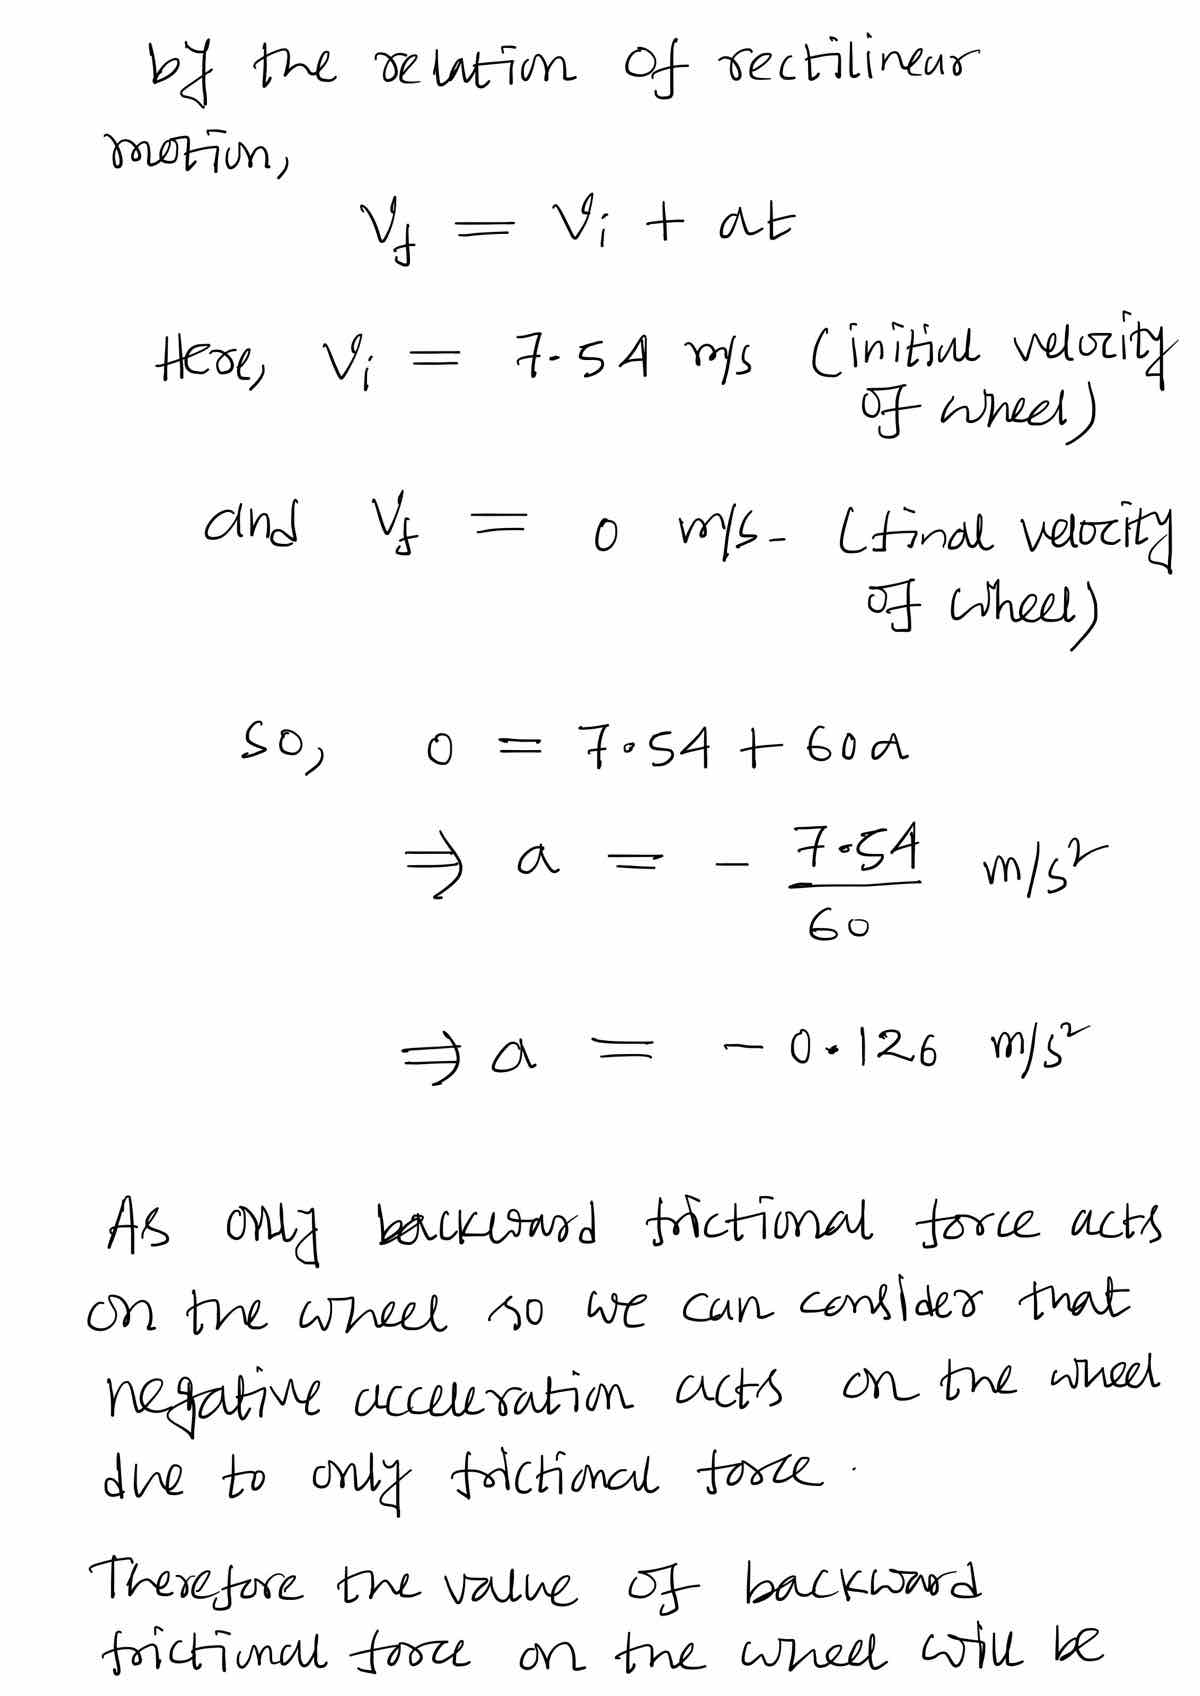 by the relation of rectilinear
motion,
V_f = V_i + at
Here, V_i = 7.54 m/s (initial velocity
of wheel)
and V_f = 0 m/s. (final velocity
of wheel)
so, 0 = 7.54 + 60a
⇒ a = - 7.54/60 m/s²
⇒ a = - 0.126 m/s²
As only backward frictional force acts
on the wheel so we can consider that
negative acceleration acts on the wheel
due to only frictional force.
Therefore the value of backward
frictional force on the wheel will be